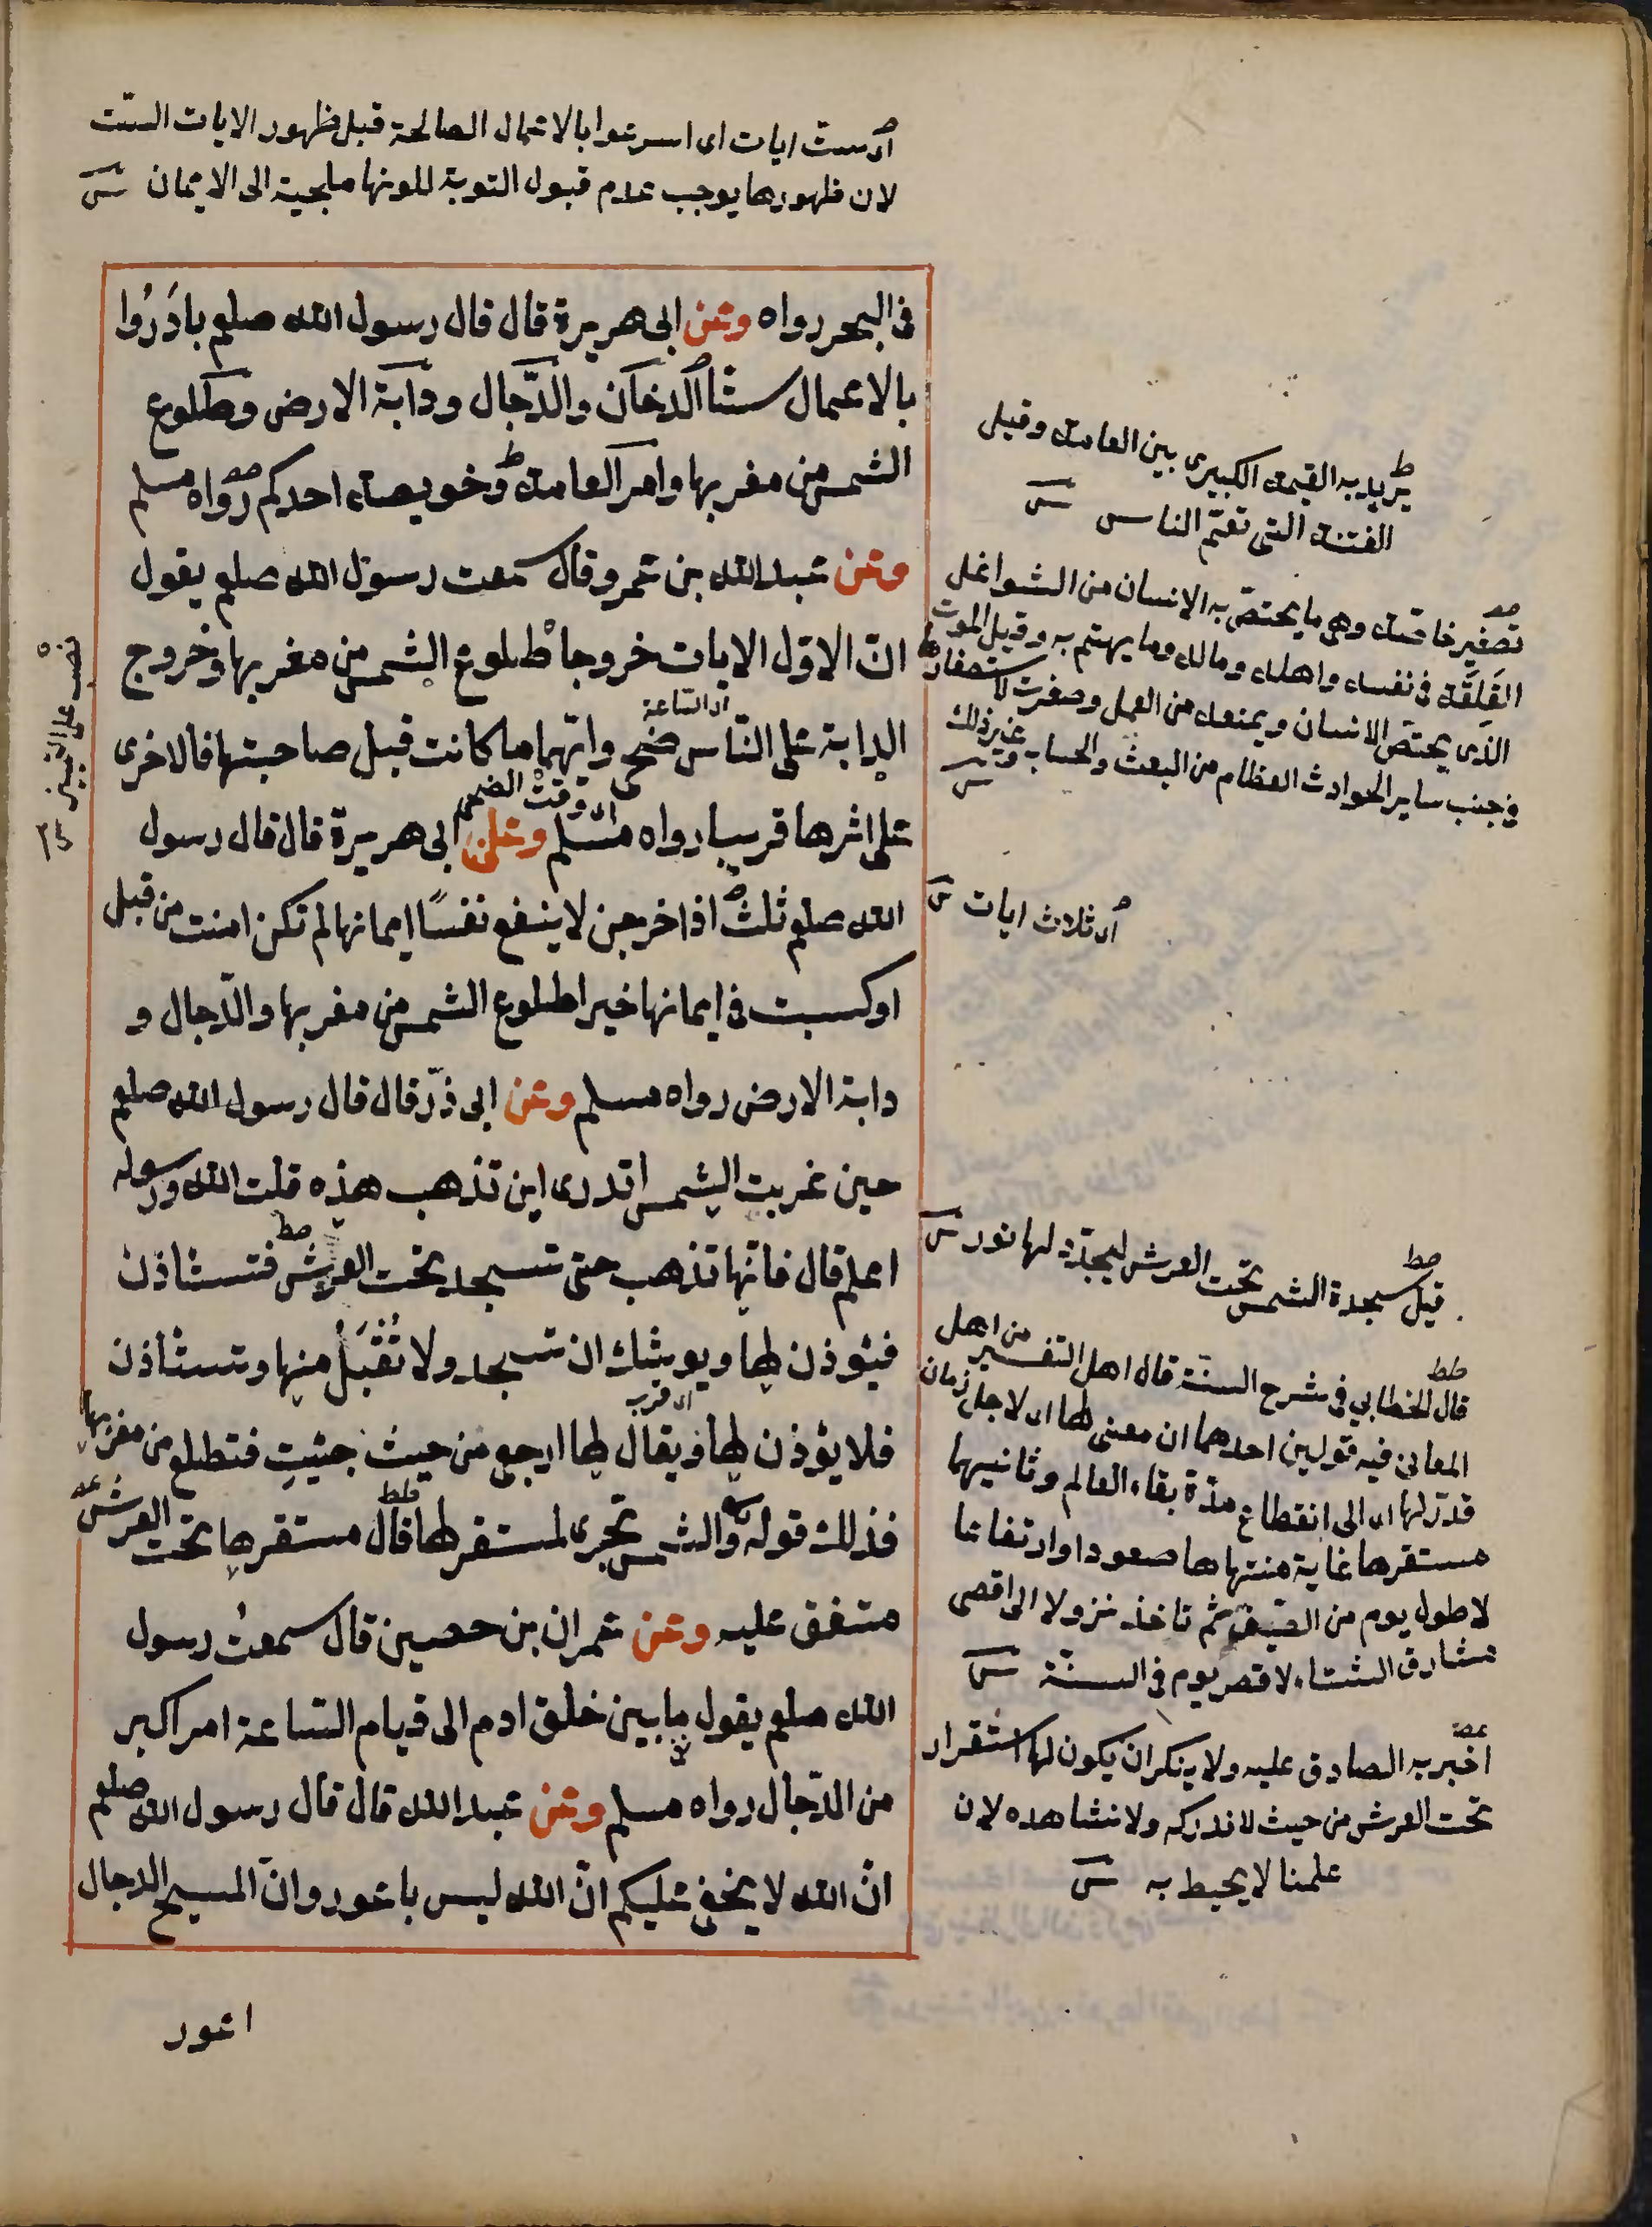 اى ست ايات اى اسرعوا بالاعمال الصالحة قبل ظهور الايات الست
لان ظهورها يوجب عدم قبول التوبة لكونها ملجية الى الايمان
فى البحر رواه وعن ابى هريرة قال قال رسول الله صلعم بادَرُوا
بالاعمال ستا الدخان والدّجال ودابة الارض وطلوع
الشمس من مغربها وامر العامة وخويصة احدكم رواه مسلم
وعن عبد الله بن عمرو قال سمعت رسول الله صلعم يقول
انّ الاوّل الايات خروجا طلوع الشمس من مغربها وخروج
اى الساعة
الدابة على النّاس ضحى وايّهما ما كانت قبل صاحبتها فالاخرى
اى وقت الضحى
على اثرها قريبا رواه مسلم وعن ابى هريرة قال قال رسول
الله صلعم ثلث اذا خرجن لا ينفع نفسًا ايمانها لم تكن امنت من قبل
او كسبت فى ايمانها خيرا طلوع الشمس من مغربها والدّجال و
دابة الارض رواه مسلم وعن ابى ذرّ قال قال رسول الله صلعم
حين غربت الشمس اتدرى اين تذهب هذه قلت الله ورسوله
اعلم قال فانّها تذهب حتى تسجد تحت العرش فتستأذن
فيؤذن لها ويوشك ان تسجد ولا تُقْبَلُ منها وتستأذن
اى قرب
فلا يؤذن لها ويقال لها ارجع من حيث جئيتِ فتطلع من مغربها
فذلك قوله والشمس تجرى لمستقر لها قال مستقرها تحت العرش
متفق عليه وعن عمران بن حصين قال سمعتُ رسول
الله صلعم يقول ما بين خلق ادم الى قيام الساعة امر اكبر
من الدّجال رواه مسلم وعن عبد الله قال قال رسول الله صلعم
انّ الله لا يخفى عليكم انّ الله ليس باعور وانّ المسيح الدجال
اعور
يريد به القيمة الكبيرى بين العامة وقيل
الفتنة التى تعمّ الناس
تصغير خاصّة وهى ما يختصّ به الانسان من الشواغل
القَلِقَة فى نفسه واهله وماله وما يهتم به وقيل الموت
الذى يختصّ الانسان ويمنعه من العمل وصغرت لاستصغارها
فى جنب ساير الحوادث العظام من البعث والحساب وغير ذلك
اى ثلاث ايات
قيل سجدة الشمس تحت العرش ليجدّد لها نور
قال الخطابي فى شرح السنّة قال اهل التفسير من اهل
المعانى فيه قولين احدهما ان معنى لها اى لاجل زمان
قدّر لها اى الى انقطاع مدّة بقاء العالم وثانيهما
مستقرها غاية منتهاها صعودا وارتفاعا
لاطول يوم من الصّيف ثم تاخذ نزولا الى اقصى
مشارق الشتاء لاقصر يوم فى السنّة
اخبر به الصادق عليه ولا ينكر ان يكون لها استقرار
تحت العرش من حيث لا ندركه ولا نشاهده لان
علمنا لا يحيط به
نصب على التمييز